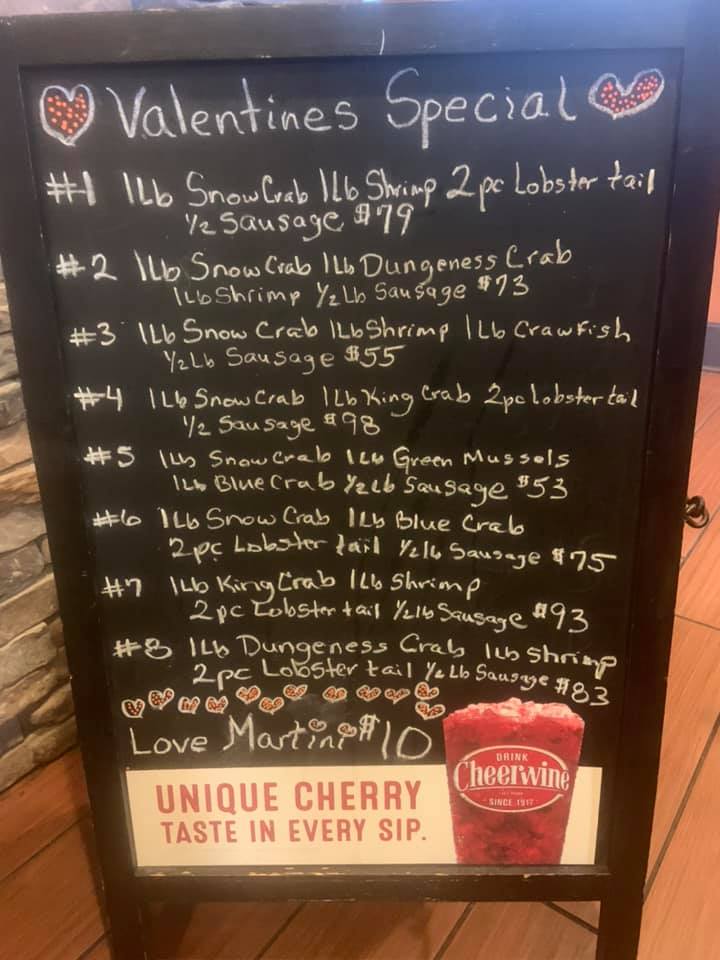 Valentines Special
#1 1Lb Snow Crab 1Lb Shrimp 2pc Lobster tail
1/2 Sausage $79
#2 1Lb Snow Crab 1Lb Dungeness Crab
1Lb Shrimp 1/2 Lb Sausage $73
#3 1Lb Snow Crab 1Lb Shrimp 1Lb Crawfish
1/2 Lb Sausage $55
#4 1Lb Snow Crab 1Lb King Crab 2pc Lobster tail
1/2 Sausage $98
#5 1Lb Snow Crab 1Lb Green Mussels
1Lb Blue Crab 1/2 Lb Sausage $53
#6 1Lb Snow Crab 1Lb Blue Crab
2pc Lobster tail 1/2 lb Sausage $75
#7 1Lb King Crab 1Lb Shrimp
2pc Lobster tail 1/2 lb Sausage $93
#8 1Lb Dungeness Crab 1Lb shrimp
2pc Lobster tail 1/2 Lb Sausage $83
Love Martini $10
UNIQUE CHERRY
TASTE IN EVERY SIP.
DRINK
Cheerwine
SINCE 1917